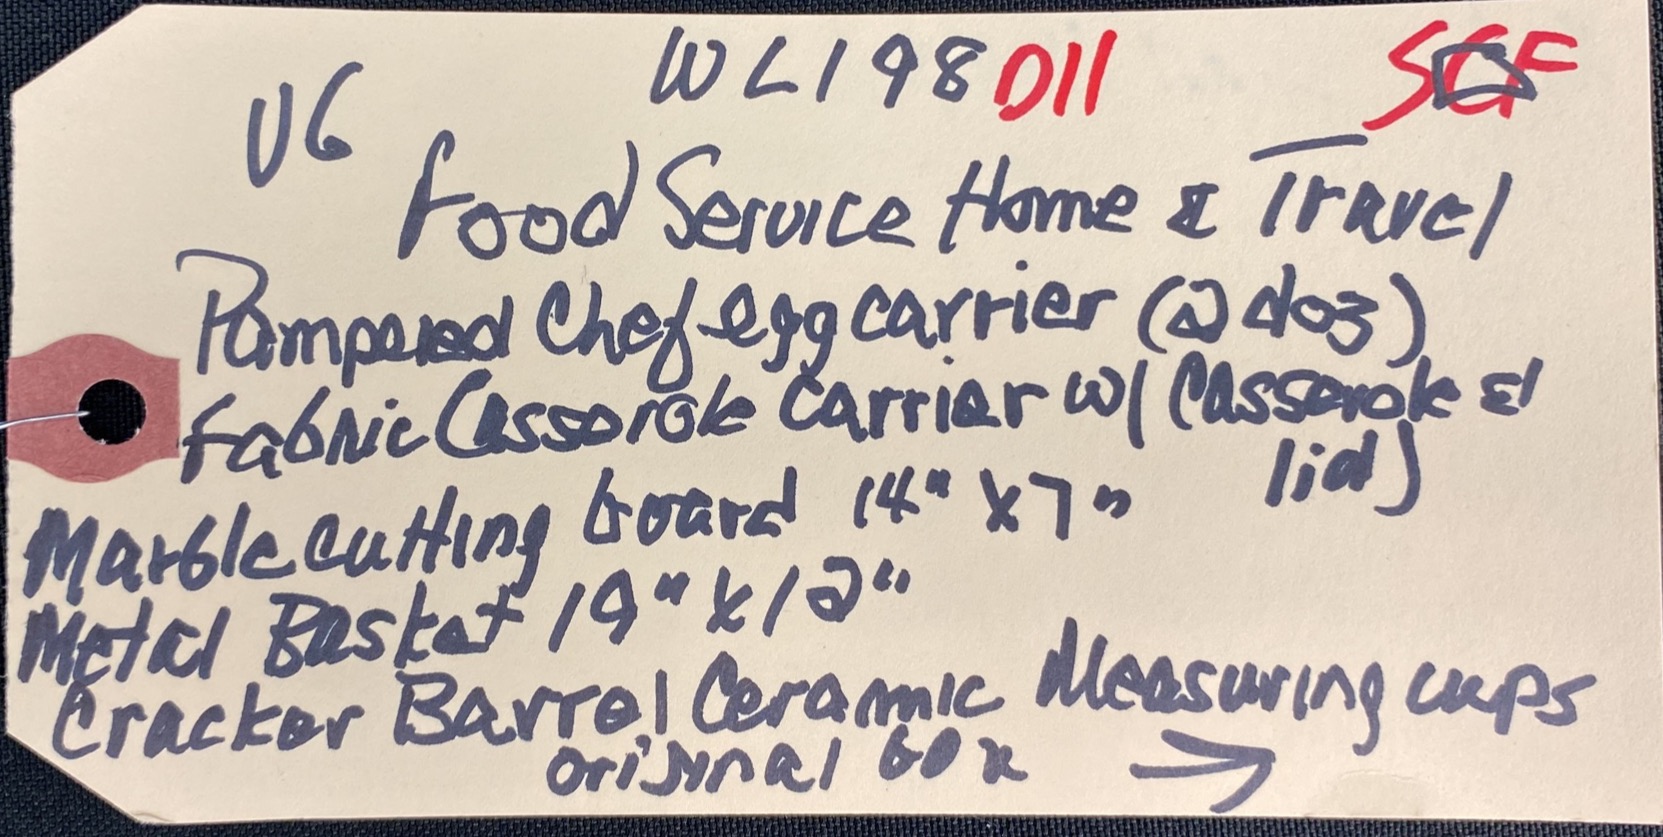 WL198 D11 SGF
V6
Food Service Home & Travel
Pampered Chef egg carrier (2 doz)
Fabric Casserole Carrier w/ (Casserole &
lid)
Marble cutting board 14" x 7"
Metal Basket 19" x 12"
Cracker Barrel Ceramic Measuring cups
original box →